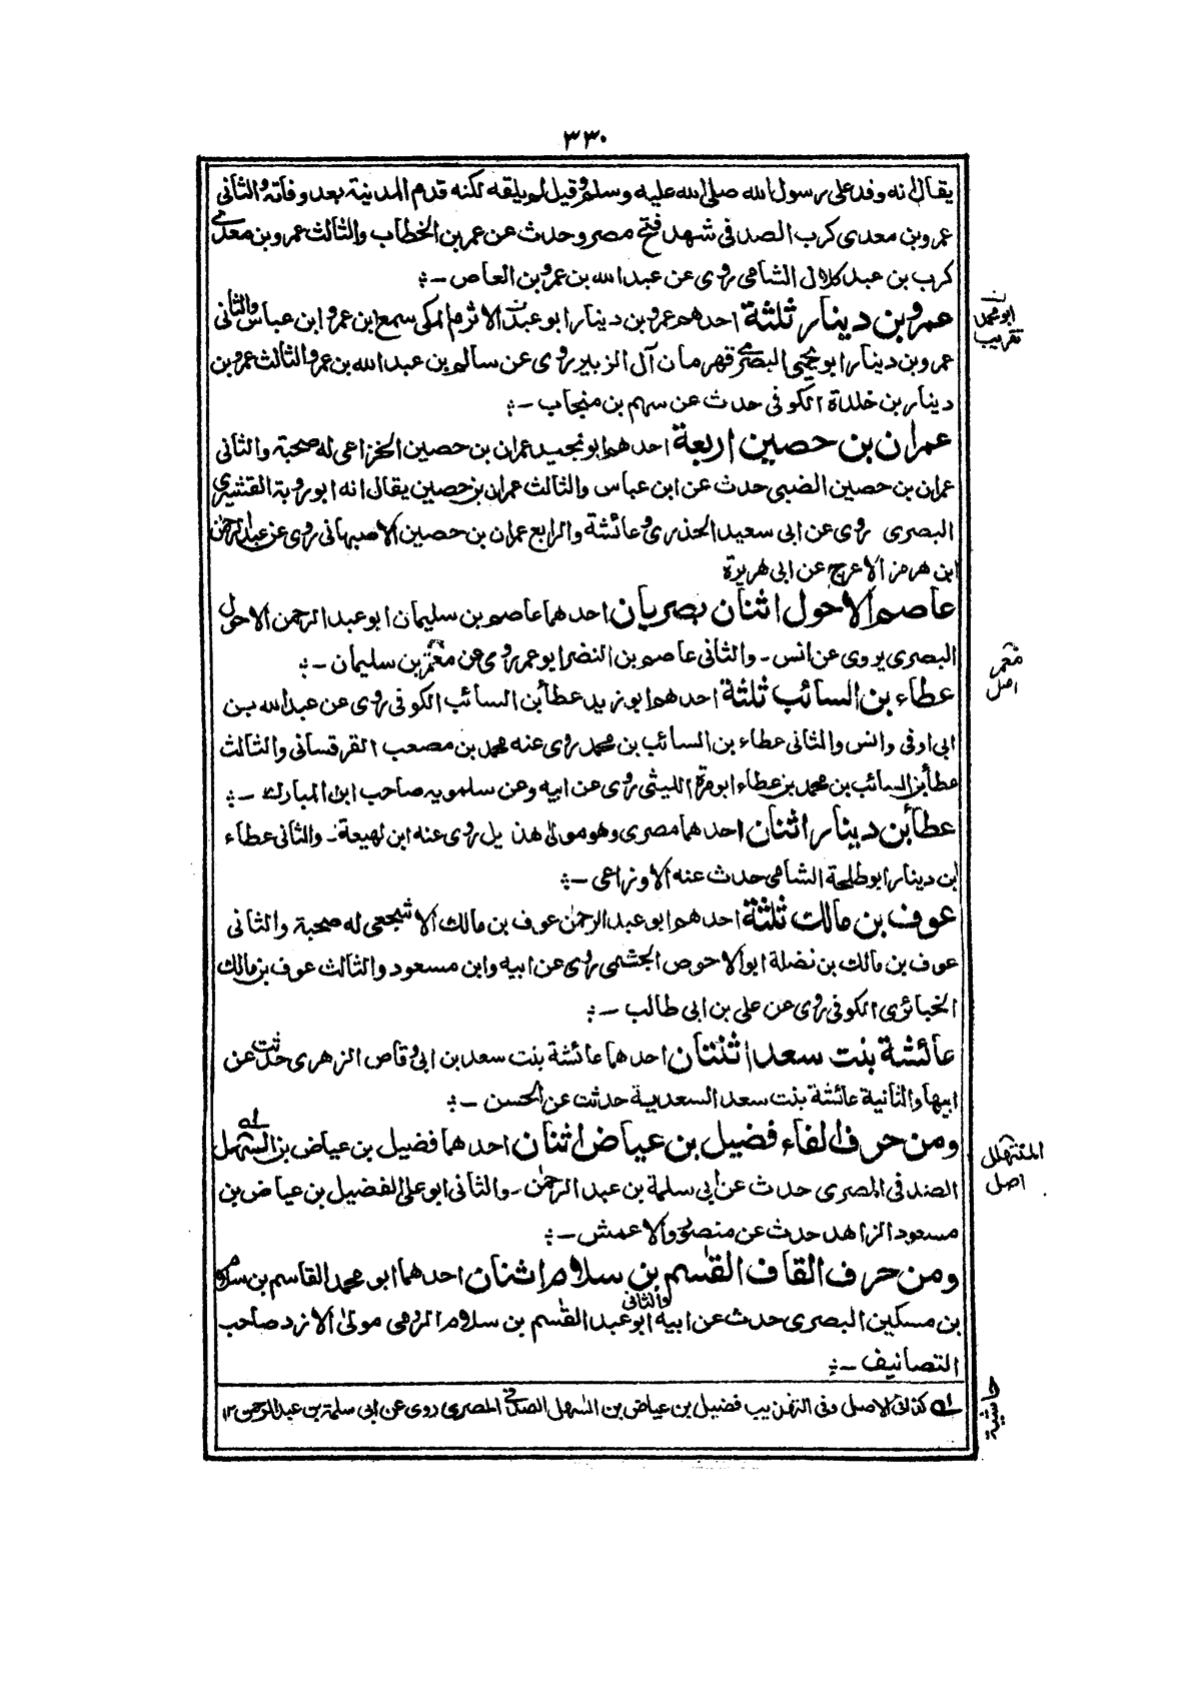 ٣٣٠
يقال انه وفد على رسول الله صلى الله عليه وسلم وقيل لم يلقه لكنه قدم المدينة بعد وفاته والثانى
عمرو بن معدى كرب الصدفى شهد فتح مصر وحدث عن عمر بن الخطاب والثالث عمرو بن معدى
كرب بن عبد كلال الشامى روى عن عبد الله بن عمرو بن العاص -:
عمرو بن دينار ثلثة احدهم عمرو بن دينار ابو عبد الاثرم المكى سمع ابن عمرو ابن عباس والثانى
ابو محمد تقريب
عمرو بن دينار ابو يحيى البصرى قهرمان آل الزبير روى عن سالم بن عبد الله بن عمر والثالث عمرو بن
دينار بن خلدة الكوفى حدث عن سهم بن منجاب -:
عمران بن حصين اربعة احدهم ابو نجيد عمران بن حصين الخزاعى له صحبة والثانى
عمران بن حصين الضبى حدث عن ابن عباس والثالث عمران بن حصين يقال انه ابو روبة القشيرى
البصرى روى عن ابى سعيد الخدرى وعائشة والرابع عمران بن حصين الاصبهانى روى عن عبد الرحمن
ابن هرمز الاعرج عن ابى هريرة
عاصم الاحول اثنان بصريان احدهما عاصم بن سليمان ابو عبد الرحمن الاحول
البصرى يروى عن انس - والثانى عاصم بن النضر ابو عمر روى عن معتمر بن سليمان -:
معمر اصل
عطاء بن السائب ثلثة احدهم ابو زيد عطأ بن السائب الكوفى روى عن عبد الله بن
ابى اوفى وانس والثانى عطاء بن السائب بن محمد روى عنه محمد بن مصعب القرقسانى والثالث
عطأ بن السائب بن محمد بن عطاء ابو مرة الليثى روى عن ابيه وعن سلمويه صاحب ابن المبارك -:
عطأ بن دينار اثنان احدهما مصرى وهو مولى هذيل روى عنه ابن لهيعة - والثانى عطاء
ابن دينار ابو طلحة الشامى حدث عنه الاوزاعى -:
عوف بن مالك ثلثة احدهم ابو عبد الرحمن عوف بن مالك الاشجعى له صحبة والثانى
عوف بن مالك بن نضلة ابو الاحوص الجشمى روى عن ابيه وابن مسعود والثالث عوف بن مالك
الخبائزى الكوفى روى عن على بن ابى طالب -:
عائشة بنت سعد اثنتان احدهما عائشة بنت سعد بن ابى وقاص الزهرى حدثت عن
ابيها والثانية عائشة بنت سعد السعدية حدثت عن الحسن -:
ومن حرف الفاء فضيل بن عياض اثنان احدهما فضيل بن عياض بن الشهل
المنتهلل اصل
الصدفى المصرى حدث عن ابى سلمة بن عبد الرحمن - والثانى ابو على الفضيل بن عياض بن
مسعود الزاهد حدث عن منصور والاعمش -:
ومن حرف القاف القٰسم بن سلام اثنان احدهما ابو محمد القاسم بن سلام
بن مسكين البصرى حدث عن ابيه والثانى ابو عبد القٰسم بن سلام الرومى مولى الازد صاحب
التصانيف -:
له كذا فى الاصل وفى التهذيب فضيل بن عياض بن الشهل الصدفى المصرى روى عن ابى سلمة بن عبد الرحمن ١٢
حاشية